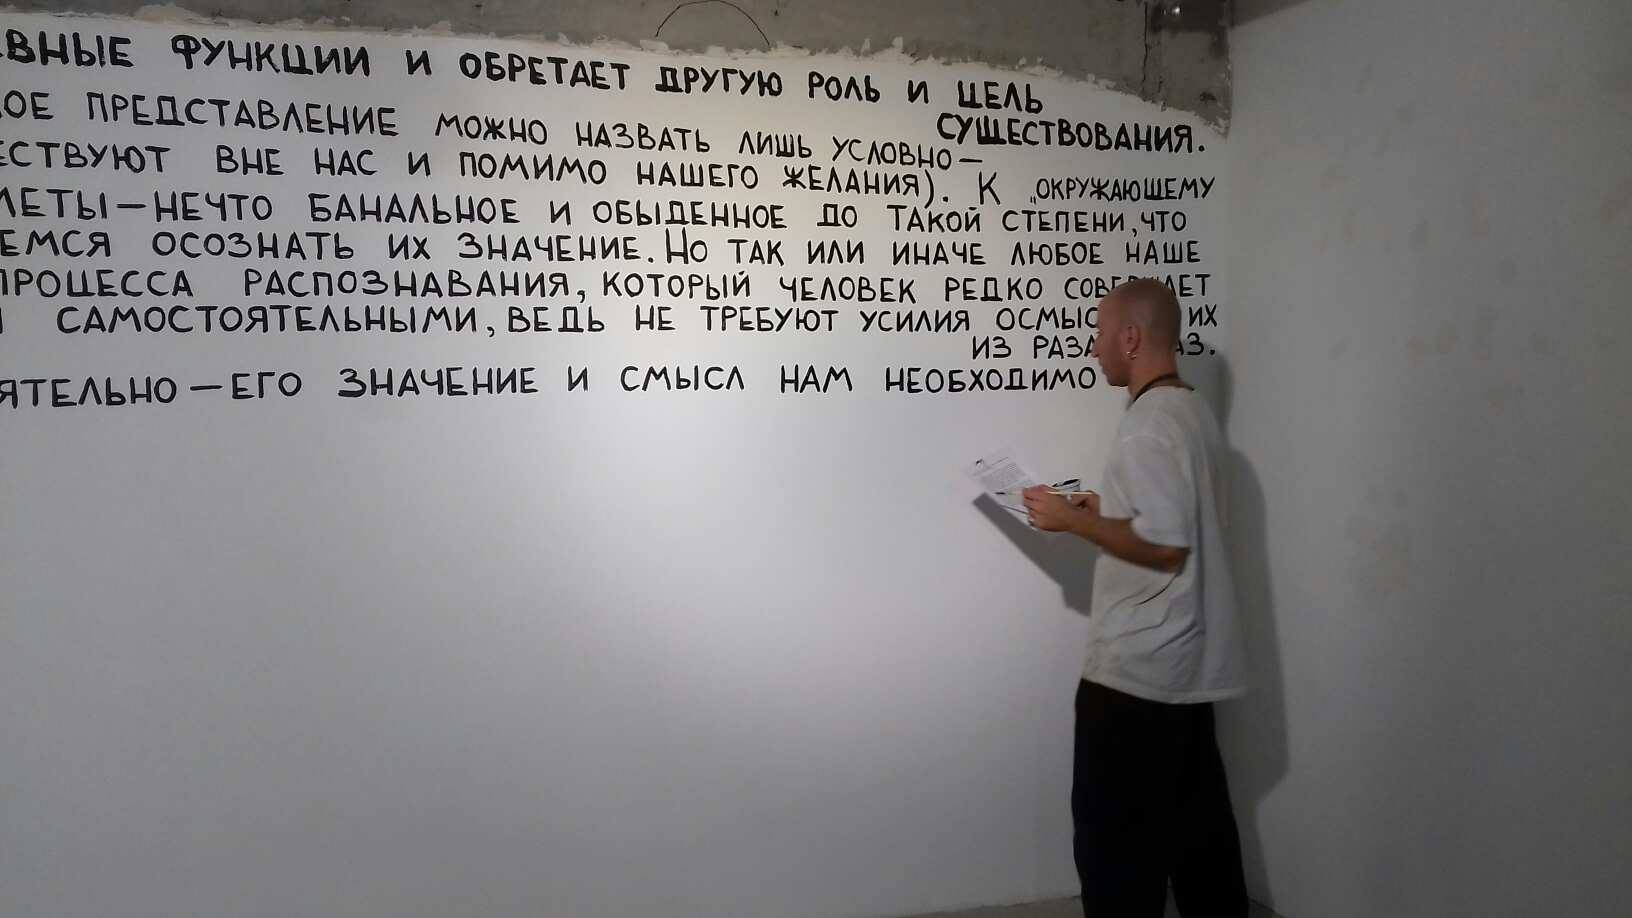 ВНЫЕ ФУНКЦИИ И ОБРЕТАЕТ ДРУГУЮ РОЛЬ И ЦЕЛЬ
СУЩЕСТВОВАНИЯ.
ОЕ ПРЕДСТАВЛЕНИЕ МОЖНО НАЗВАТЬ ЛИШЬ УСЛОВНО —
ЕСТВУЮТ ВНЕ НАС И ПОМИМО НАШЕГО ЖЕЛАНИЯ). К „ОКРУЖАЮЩЕМУ
ЛЕТЫ — НЕЧТО БАНАЛЬНОЕ И ОБЫДЕННОЕ ДО ТАКОЙ СТЕПЕНИ, ЧТО
ЕМСЯ ОСОЗНАТЬ ИХ ЗНАЧЕНИЕ. НО ТАК ИЛИ ИНАЧЕ ЛЮБОЕ НАШЕ
ПРОЦЕССА РАСПОЗНАВАНИЯ, КОТОРЫЙ ЧЕЛОВЕК РЕДКО
САМОСТОЯТЕЛЬНЫМИ, ВЕДЬ НЕ ТРЕБУЮТ УСИЛИЯ ОСМЫС ИХ
ИЗ РАЗА АЗ.
ЯТЕЛЬНО — ЕГО ЗНАЧЕНИЕ И СМЫСЛ НАМ НЕОБХОДИМО